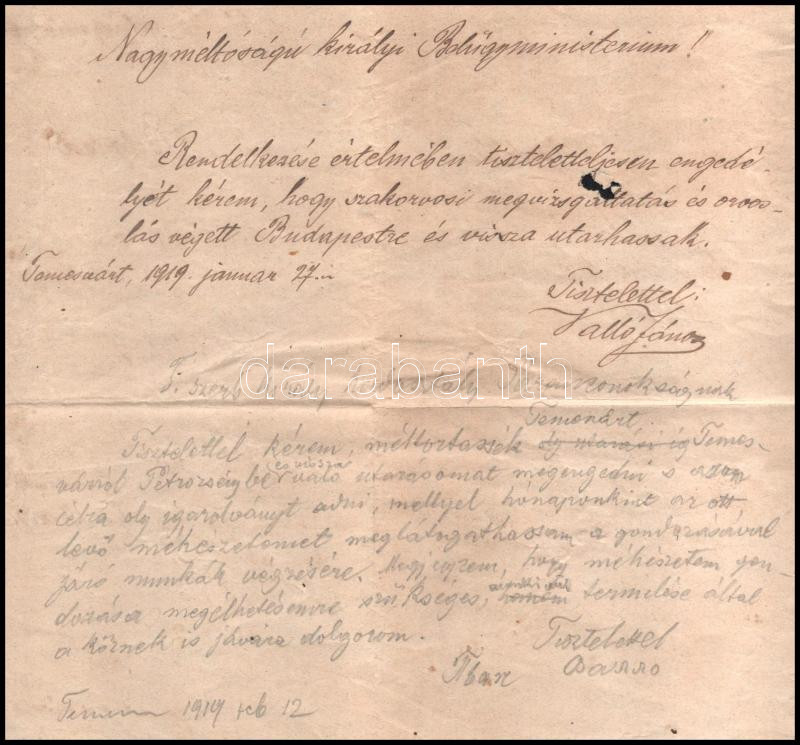 Nagyméltóságú királyi Belügyministerium!
Rendelkezése értelmében tiszteletteljesen engedé-
lyét kérem, hogy szakorvosi megvizsgáltatás és orvos-
lás végett Budapestre és vissza utazhassak.
Temesvárt, 1919. január 27.
Tisztelettel:
Valló János
darabanth
T. szerb királyi Parancsnokságnak
Temesvárt
Tisztelettel kérem, méltóztassék Temes-
várról
és vissza
való utazásomat megengedni s azon
célra oly igazolványt adni, mellyel hónaponkint az ott
levő méhészetemet meglátogathassam a gondozásával
járó munkák végzésére. Megjegyzem, hogy méhészetem gon-
dozása megélhetésemre szükséges, termelése által
a köznek is javára dolgozom.
Tisztelettel
Валло
1919 feb 12